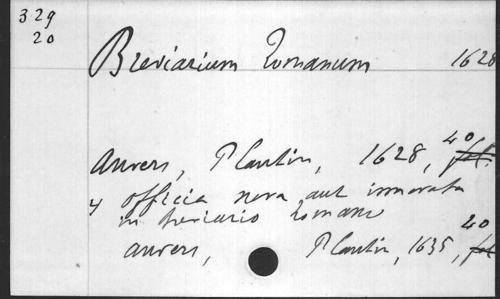 329
20
Breviarium romanum 1628
Anvers, Plantin, 1628, 4o fol.
4 officia nova aut innovata
in breviario romano
anvers, Plantin, 1635, 4o fol